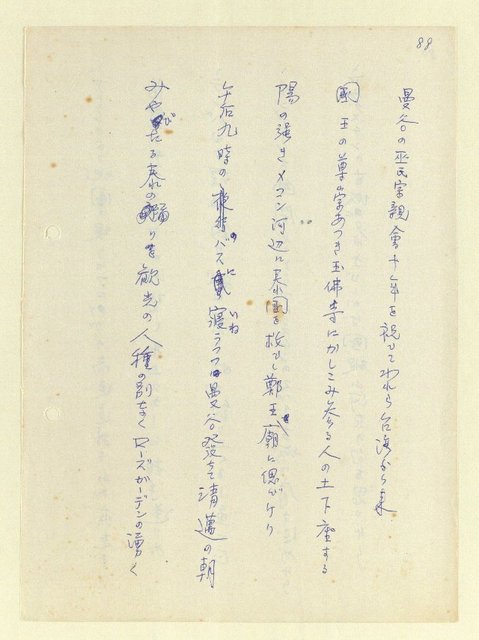 88
曼谷の巫氏宗親會十年を祝してわれら台湾から来
国王の尊崇あつき玉佛寺にかしこみ参る人の土下座する
陽の強きメコン河辺に泰国を救し鄭王廟に偲びけり
午后九時の夜行バスのに寝つつ曼谷発ち清邁の朝
いね
みやびたる泰の踊りを観光の人種の別なくローズガデンの湧く